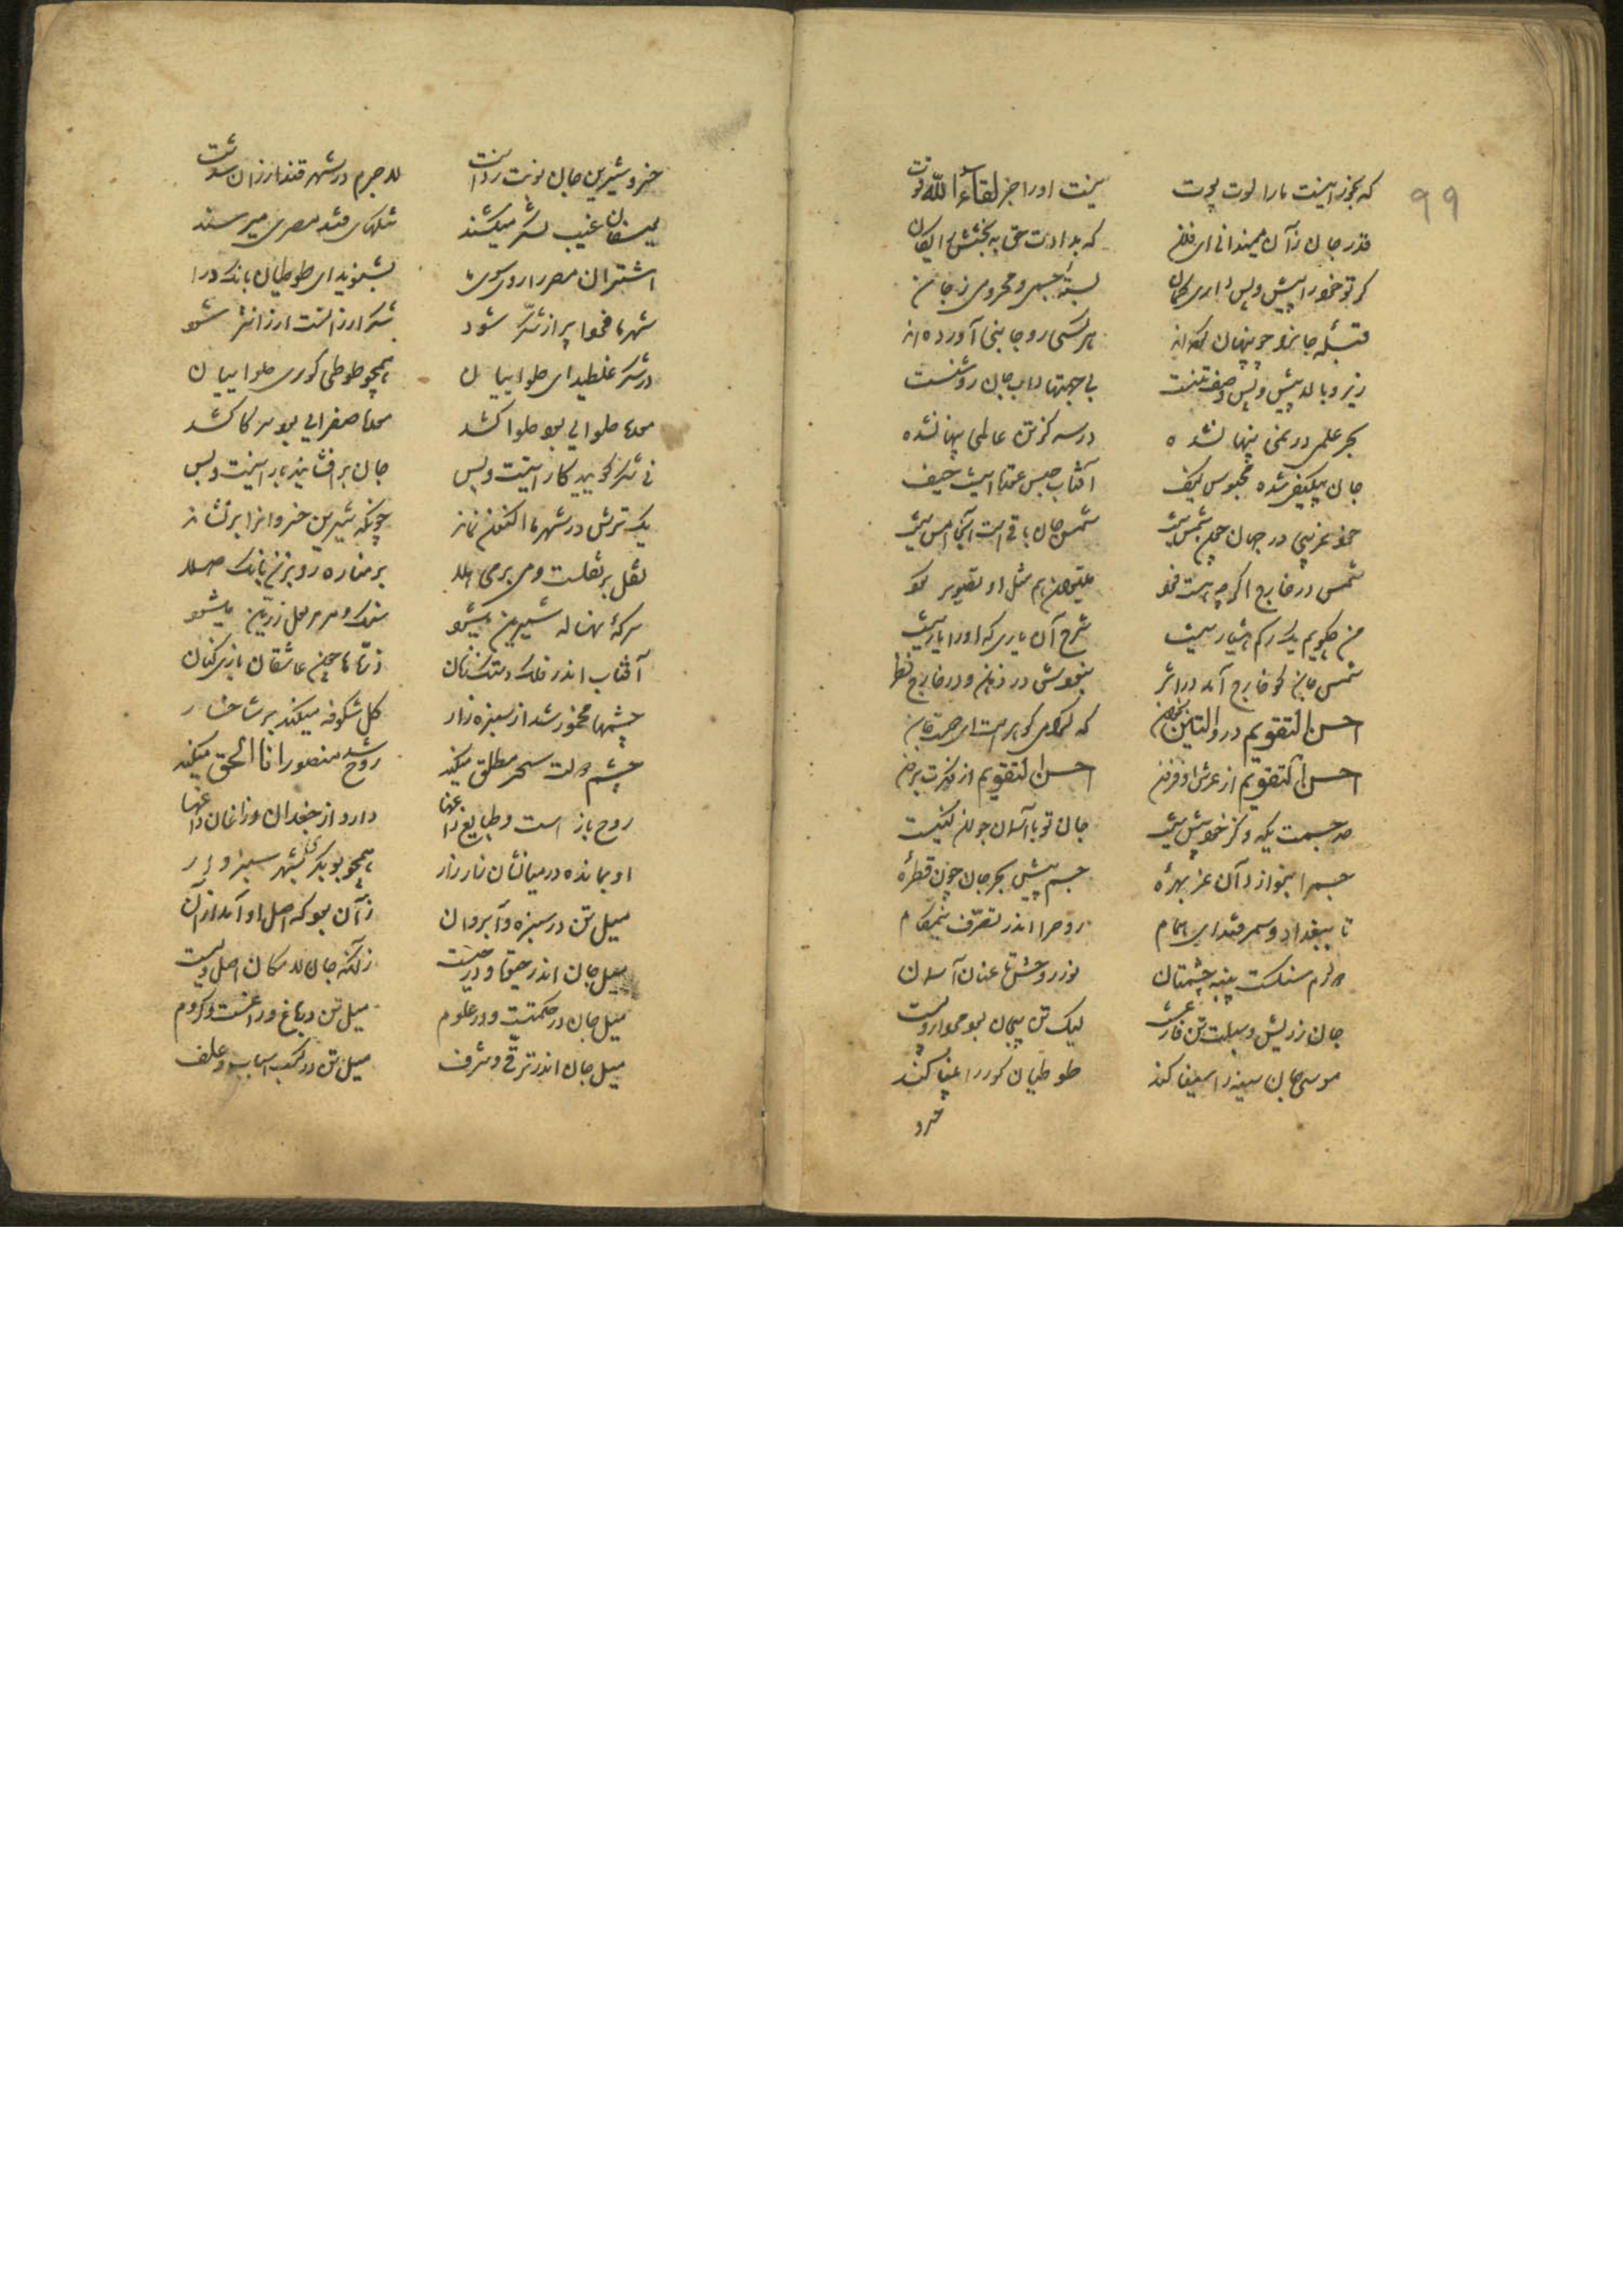 99
که بجز این نیست ما را قوت پوت نیست او را جز لقاء الله قوت
قدر جان زآن میندانی ای فلان که بدادت حق به بخشش رایگان
گر تو خود را پیش و پس داری گمان بسته جسمی و محرومی ز جان
قبله جانرا چو پنهان کرده‌اند هر کسی رو جانبی آورده‌اند
زیر و بالا پیش و پس وصف تنست بی جهتها ذات جان روشنست
بحر علمی در نمی پنهان شده در سه گز تن عالمی پنهان شده
جان بیکیفی شده محبوس کیف آفتاب حبس عقده اینت حیف
خود غریبی در جهان چون شمس نیست شمس جان باقی است آنرا امس نیست
شمس در خارج اگر چه هست فرد میتوان هم مثل او تصویر کرد
من چگویم یک رگم هشیار نیست شرح آن یاری که او را یار نیست
شمس جان کو خارج آمد در اثر نبودش در ذهن و در خارج نظر
احسن التقویم در والتین بخوان که گرامی گوهر است ای دوست جان
احسن التقویم از عرش او فزون احسن التقویم از فکرت برون
حد جسمت یک دو گز خود بیش نیست جان تو با آسمان جولان کنیست
جسم را نبود از آن عز بهرهٔ جسم پیش بحر جان چون قطرهٔ
تا ببغداد و سمرقند ای همام روح را اندر تصرف نیم گام
دو درم سنگست پیه چشمتان نور روحش تا عنان آسمان
جان ز ریش و سبلت تن فارغست لیک تن بیجان بود مردار و پست
موسی جان سینه را سینا کند طوطیان کور را بینا کند
خسرو
خسرو شیرین جان نوبت زدست لاجرم در شهر قند ارزان شدست
یوسفان غیب لشکر میکشند تنگهای قند مصری میرسند
اشتران مصر را رو سوی ما بشنوید ای طوطیان بانگ درا
شهر ما فردا پر از شکر شود شکر ارزانست ارزانتر شود
در شکر غلطید ای حلواییان همچو طوطی کوری صفراییان
نی شکر کوبید کار اینست و بس جان بر افشانید یار اینست و بس
یک ترش در شهر ما اکنون نماند چونکه شیرین خسروانرا بر نشاند
نقل بر نقلست و می بر می هلا بر مناره رو بزن بانگ صلا
سرکهٔ نه ساله شیرین میشود سنگ و مرمر لعل زرین میشود
آفتاب اندر فلک دستک زنان ذره‌ها چون عاشقان بازی کنان
چشمها مخمور شد از سبزه زار گل شکوفه میکند بر شاخسار
چشم دولت سحر مطلق میکند روح شد منصور انا الحق میکند
روح باز است و طبایع زاغها دارد از جغدان و زاغان داغها
او بمانده در میانشان زار زار همچو بوبکری بشهر سبزوار
میل تن در سبزه و آب روان زآن بود که اصل او آمد از آن
میل جان اندر حیوة و در حیست زآنکه جان لامکان اصل ویست
میل جان در حکمتست و در علوم میل تن در باغ و راغست و کروم
میل جان اندر ترقی و شرف میل تن در کسب اسباب و علف